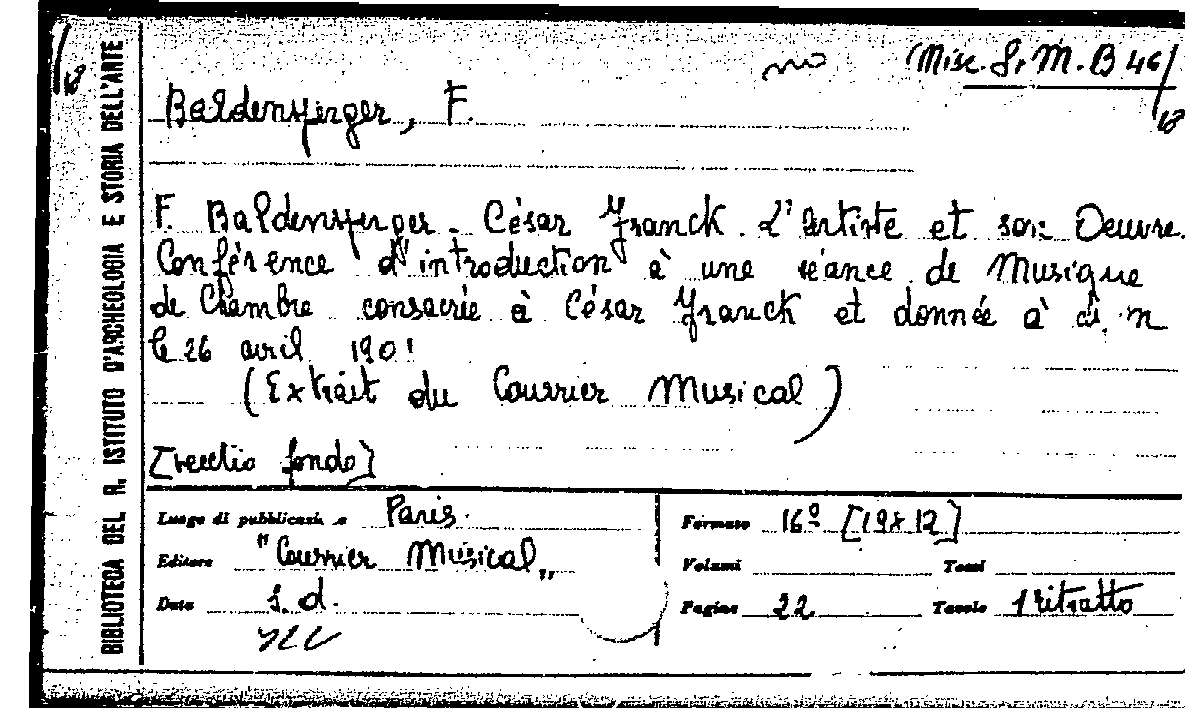 Misc. S. M. B 46/18
no
/18
Baldensperger, F.
F. Baldensperger. César Franck. L'Artiste et son Oeuvre.
Conférence d'introduction à une séance de Musique
de Chambre consacrée à César Franck et donnée à
le 26 avril 1901
(Extrait du Courrier Musical)
[vecchio fondo]
Luogo di pubblicazione Paris.
Editore "Courrier Musical"
Data s. d.
Formato 16º [19x12]
Volumi Tomi
Pagine 22 Tavole 1 ritratto
BIBLIOTECA DEL R. ISTITUTO D'ARCHEOLOGIA E STORIA DELL'ARTE